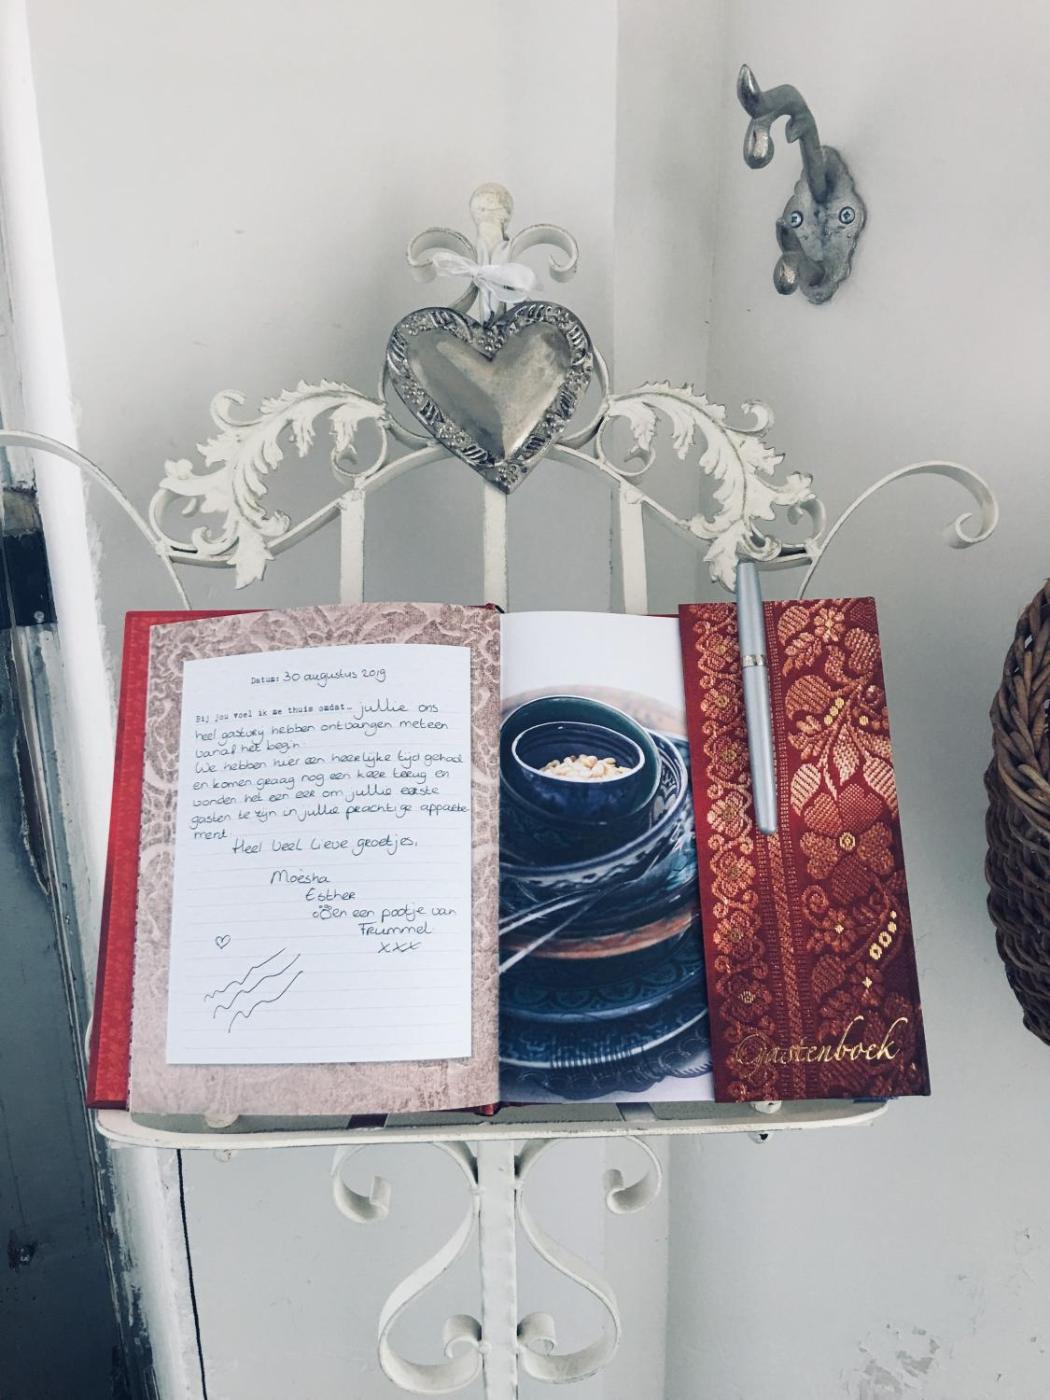 Datum: 30 augustus 2019
Bij jou voel ik me thuis omdat... jullie ons
heel gastvrij hebben ontvangen meteen
vanaf het begin
We hebben hier een heerlijke tijd gehad
en komen graag nog een keer terug en
vonden het een eer om jullie eerste
gasten te zijn in jullie prachtige apparte-
ment.
Heel veel lieve groetjes,
Moësha
Esther
en een pootje van
Frummel
xxx
Gastenboek